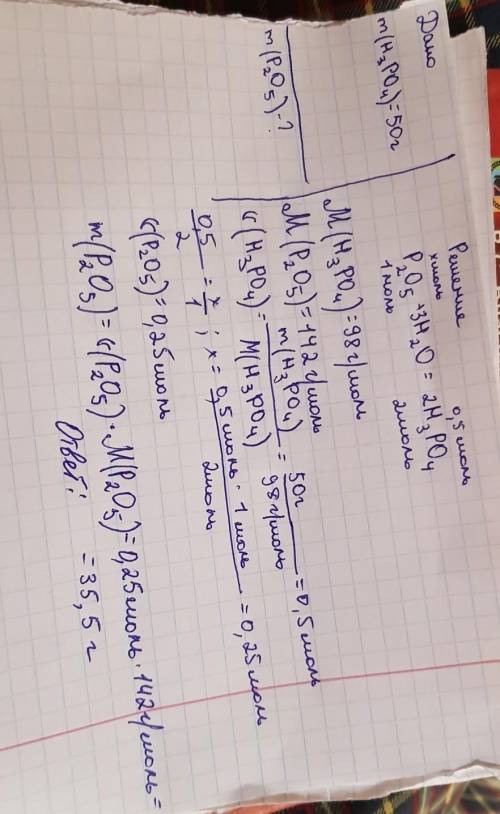 Дано
m(H₃PO₄)=50г
m(P₂O₅)-?
Решение
xмоль 0,5моль
P₂O₅+3H₂O = 2H₃PO₄
1моль 2моль
M(H₃PO₄)=98г/моль
M(P₂O₅)=142г/моль
ν(H₃PO₄)= m(H₃PO₄)/M(H₃PO₄) = 50г/98г/моль =0,5моль
0,5/2 = x/1 ; x= 0,5моль·1моль/2моль =0,25моль
ν(P₂O₅)=0,25моль
m(P₂O₅)=ν(P₂O₅)·M(P₂O₅)=0,25моль·142г/моль=
=35,5г
Ответ: